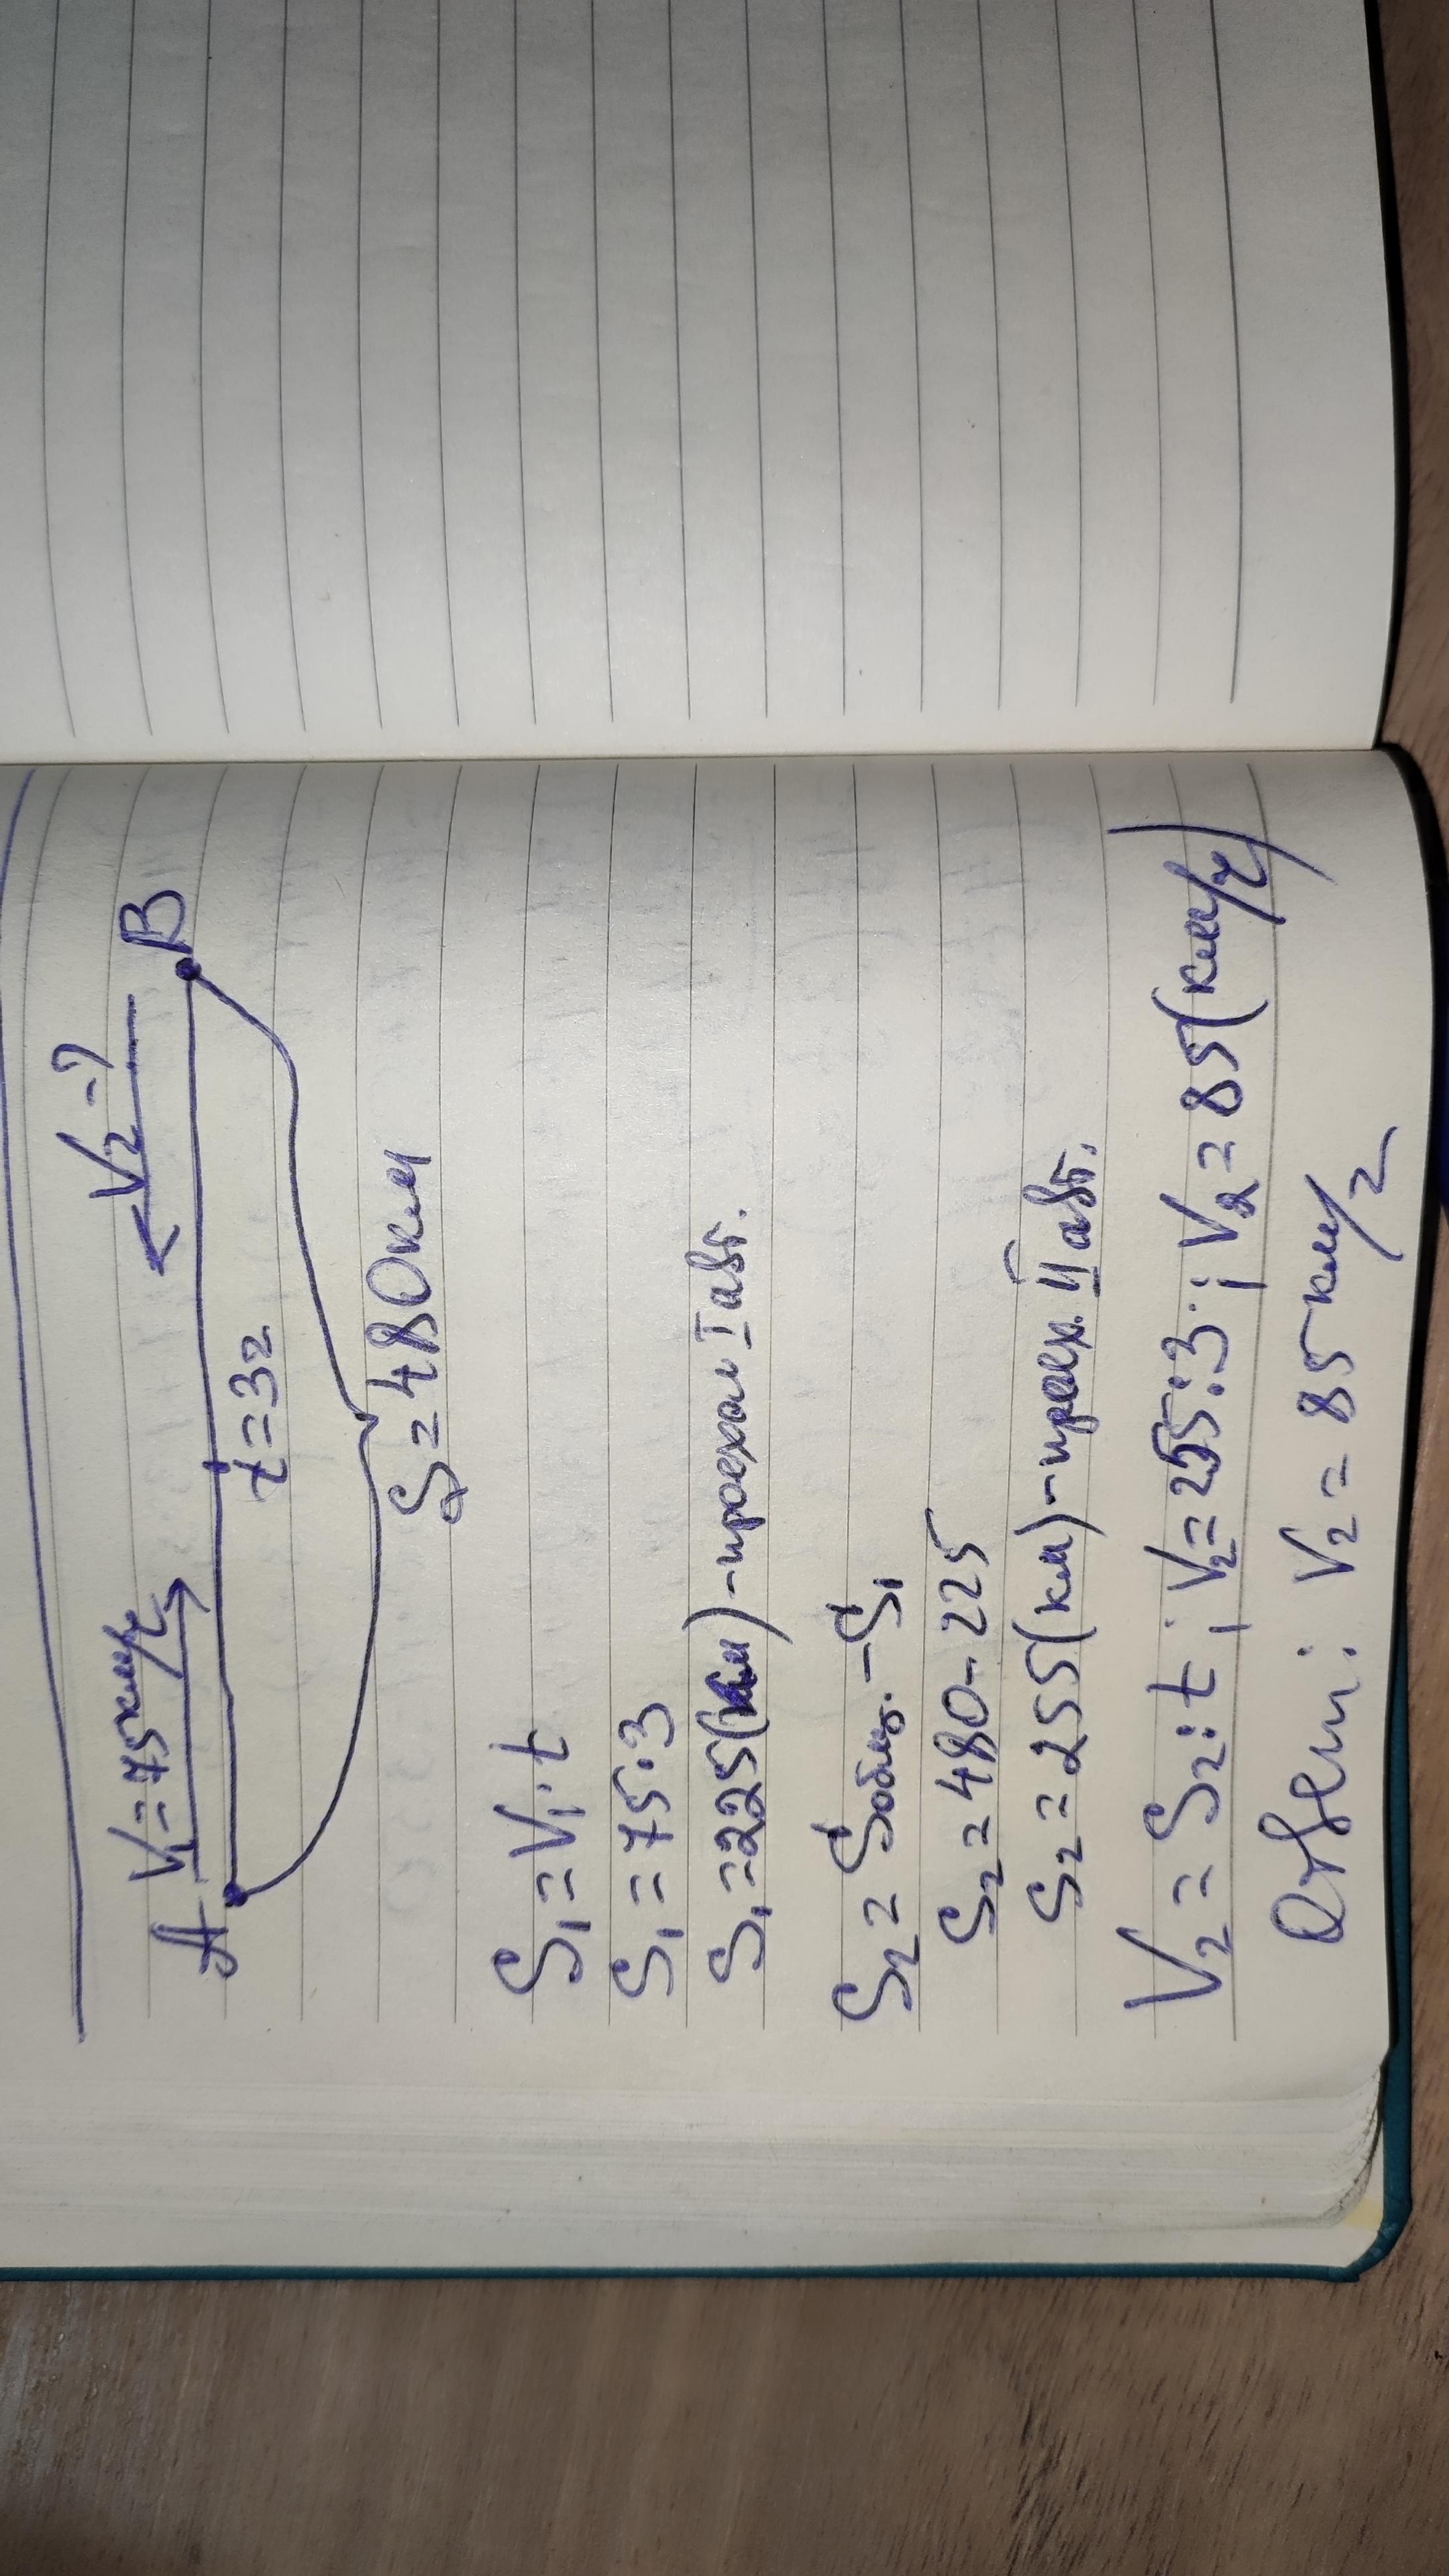 V₂ - ?
A V₁ = 75км/ч B
t = 3г
S = 480км
S₁ = V₁ · t
S₁ = 75 · 3
S₁ = 225(км) - проехал I авт.
S₂ = Sобщ. - S₁
S₂ = 480 - 225
S₂ = 255(км) - проех. II авт.
V₂ = S₂ : t ; V₂ = 255 : 3 ; V₂ = 85(км/ч)
Ответ: V₂ = 85 км/г